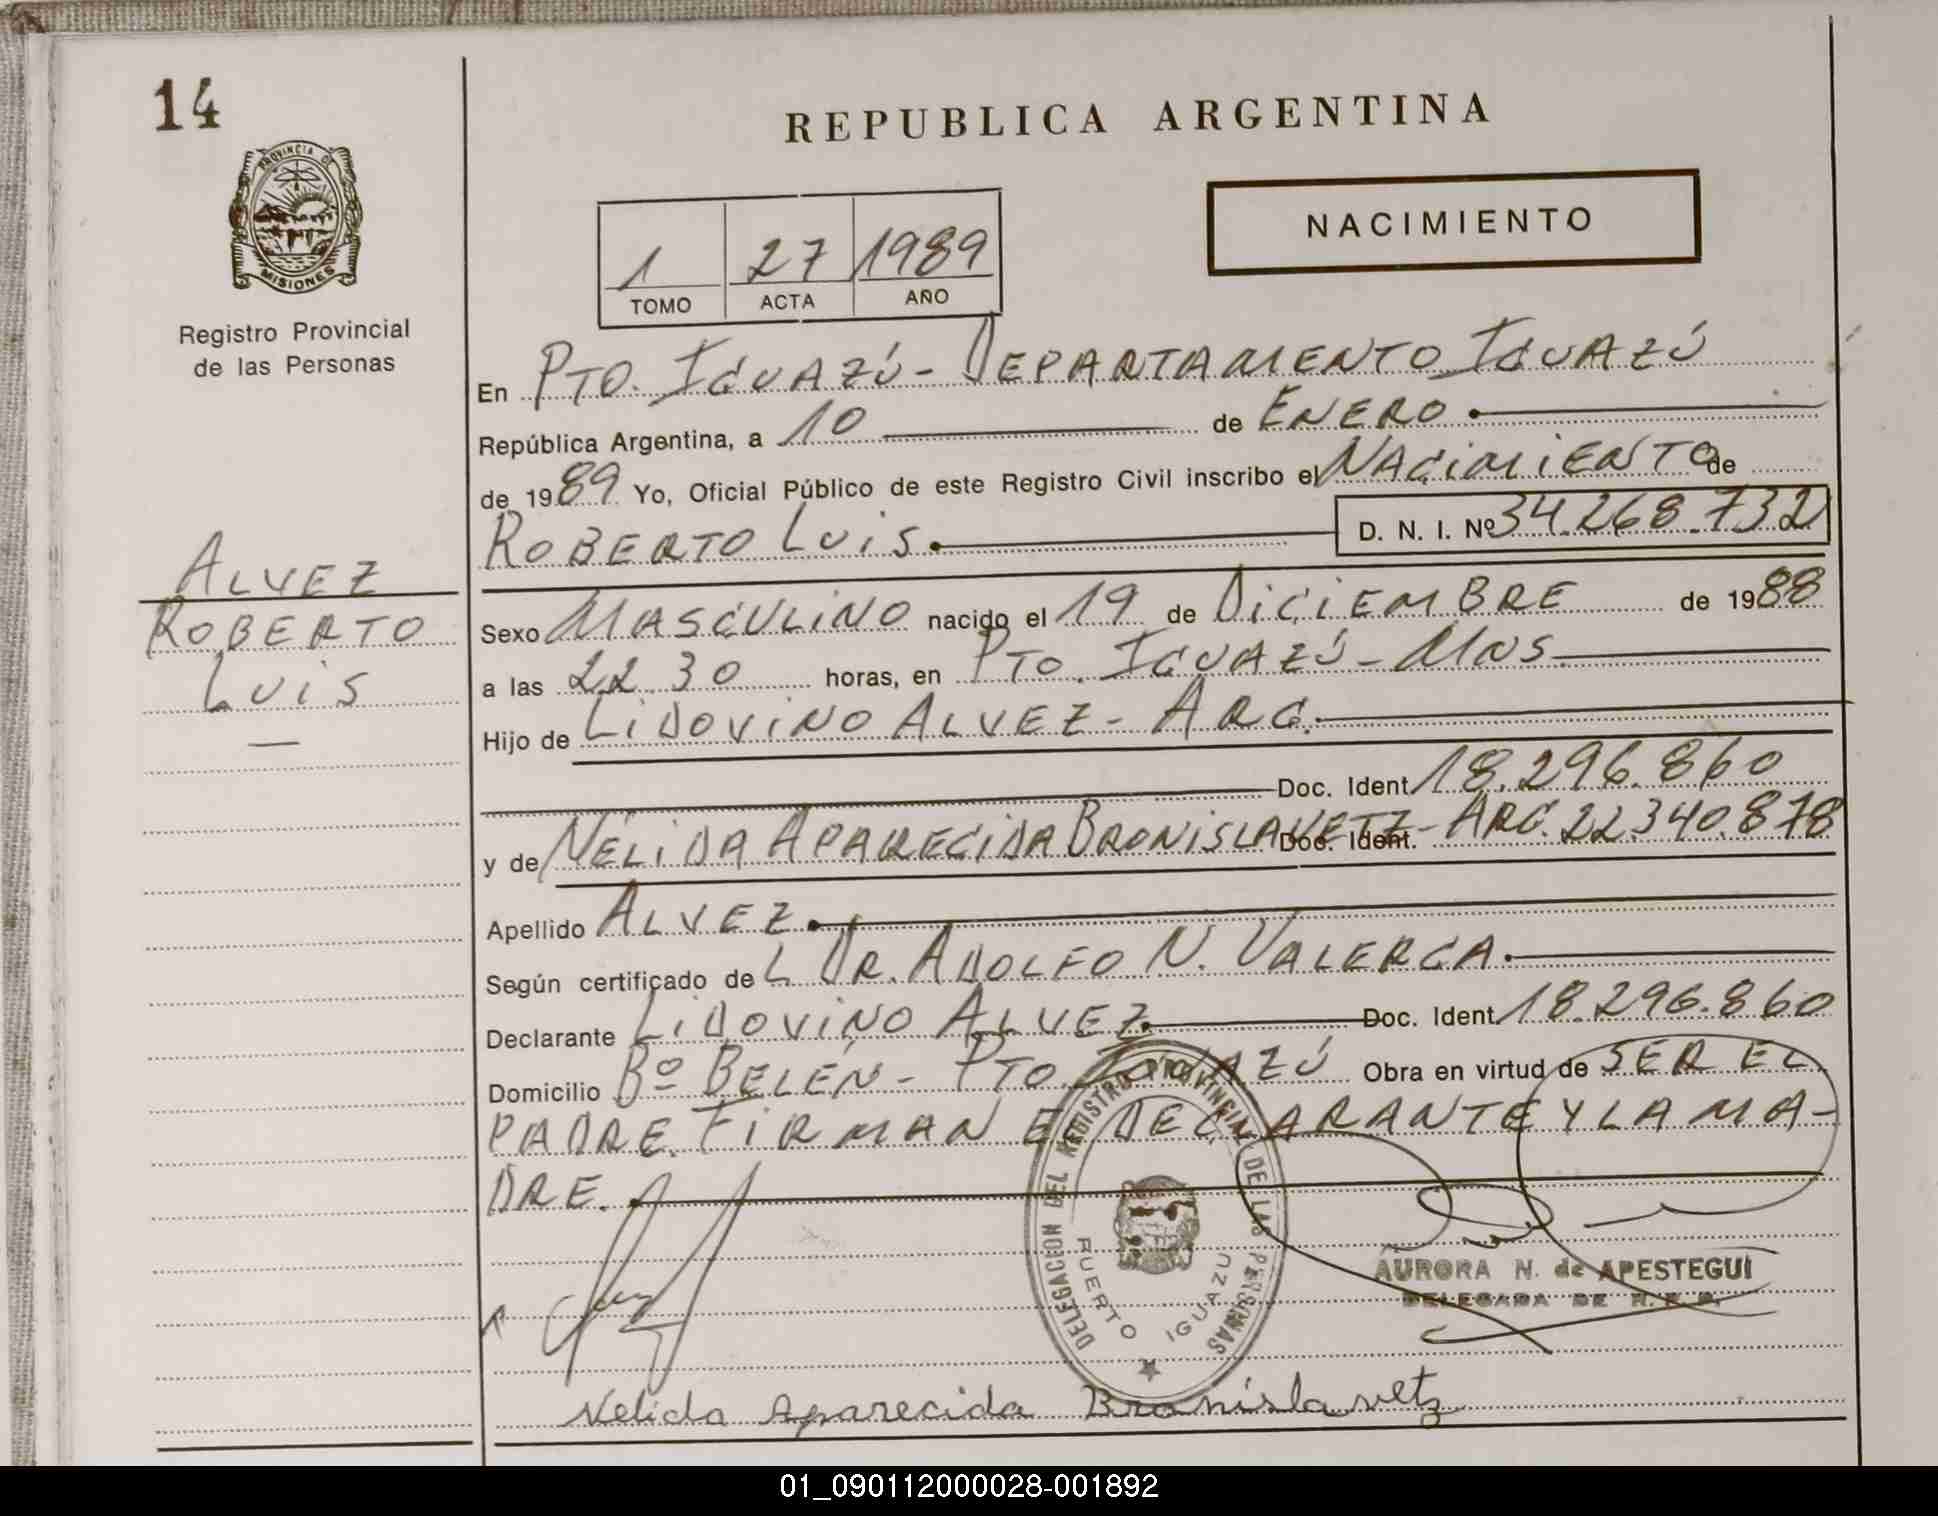 14
REPUBLICA ARGENTINA
PROVINCIA DE
MISIONES
NACIMIENTO
1 27 1989
TOMO ACTA AÑO
Registro Provincial
de las Personas
En PTO. IGUAZÚ - DEPARTAMENTO IGUAZÚ
República Argentina, a 10 de ENERO
de 1989 Yo, Oficial Público de este Registro Civil inscribo el NACIMIENTO de
ROBERTO LUIS. D. N. I. Nº 34.268.732
ALVEZ
ROBERTO
LUIS
Sexo MASCULINO nacido el 19 de DICIEMBRE de 1988
a las 22.30 horas, en PTO. IGUAZÚ - MNS.
Hijo de LIDOVINO ALVEZ - ARG.
Doc. Ident. 18.296.860
y de NÉLIDA APARECIDA BRONISLAVETZ - Doc. Ident. ARG. 22.340.878
Apellido ALVEZ.
Según certificado de L DR. ADOLFO N. VALERGA.
Declarante LIDOVINO ALVEZ. Doc. Ident. 18.296.860
Domicilio Bº BELÉN - PTO IGUAZÚ Obra en virtud de SER EL
PADRE. FIRMAN EL DECLARANTE Y LA MA-
DRE.
DELEGACION DEL REGISTRO PROVINCIAL DE LAS PERSONAS
PUERTO IGUAZU
AURORA N. de APESTEGUI
DELEGADA DE R. P. P.
Nelida Aparecida Bronislavetz
01_090112000028-001892